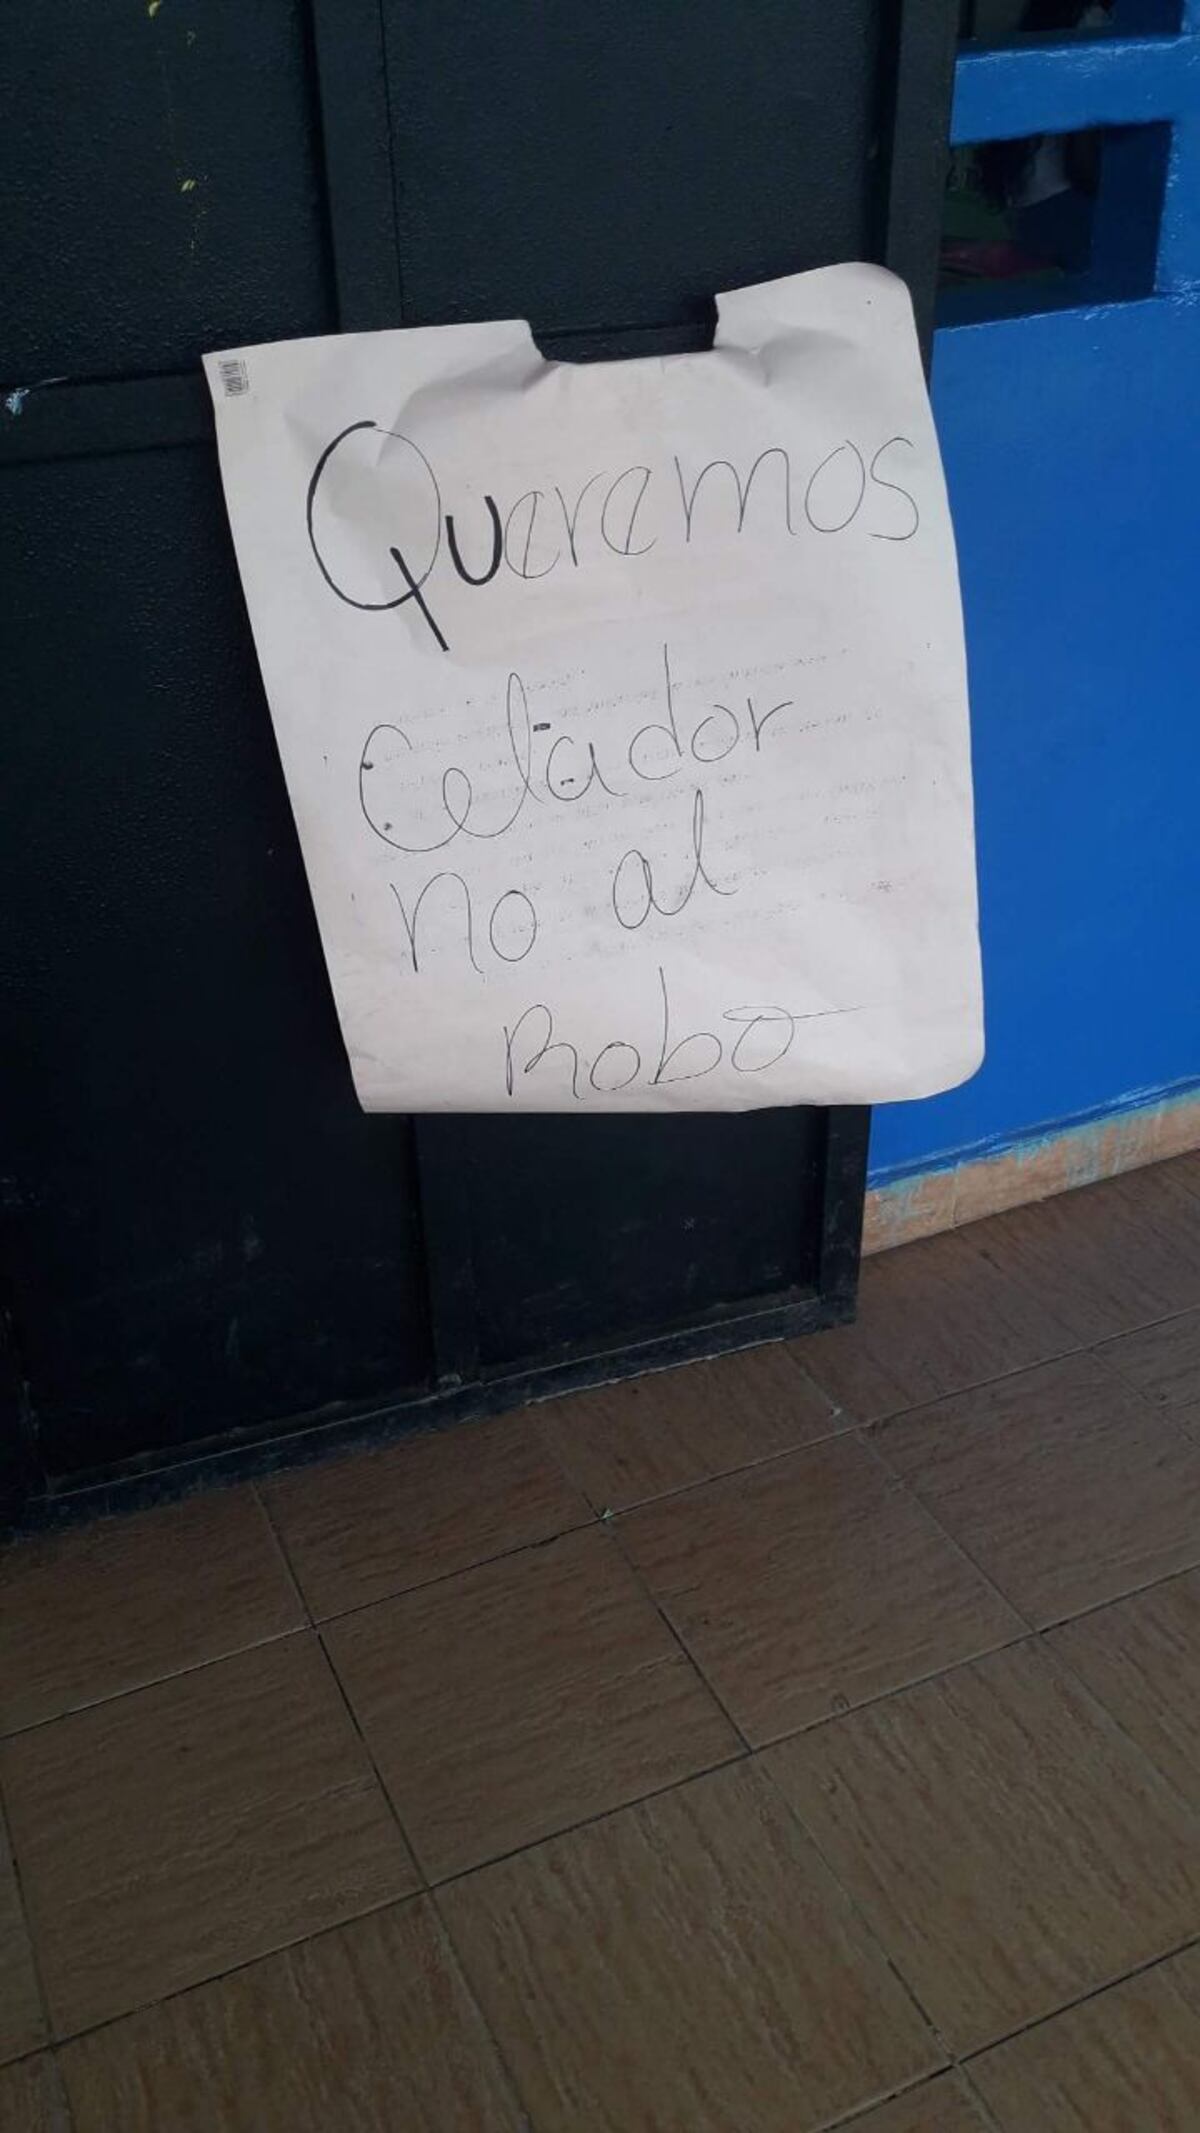 Queremos
Celador
no al
Robo